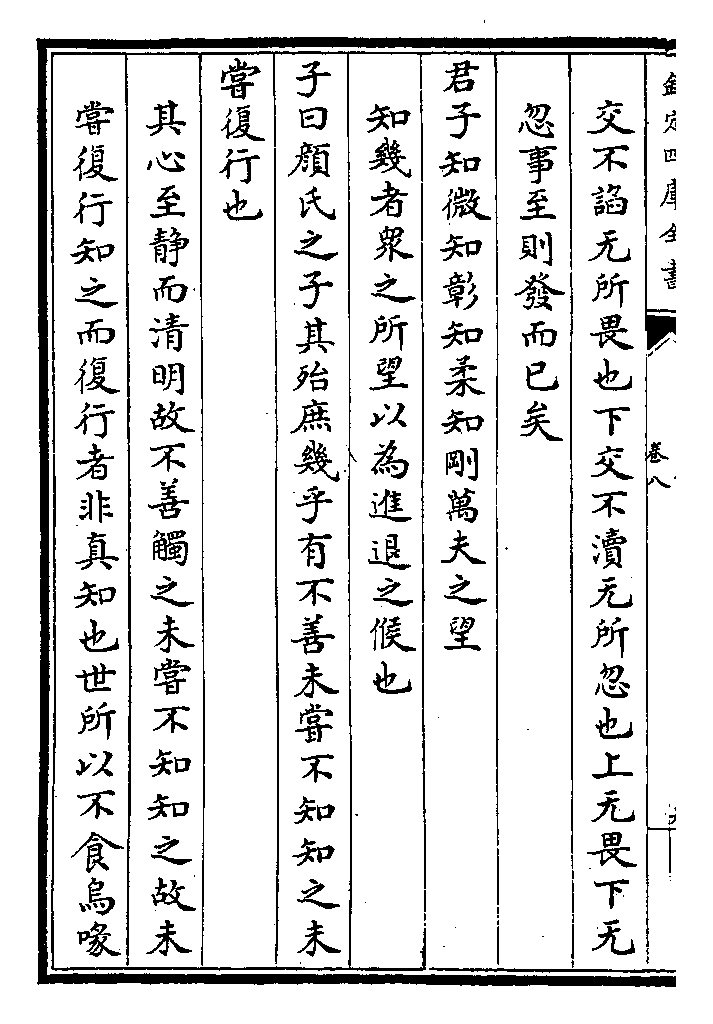 欽定四庫全書
卷八
交不諂无所畏也下交不瀆无所忽也上无畏下无
忽事至則發而已矣
君子知微知彰知柔知剛萬夫之望
知幾者眾之所望以為進退之候也
子曰顏氏之子其殆庶幾乎有不善未嘗不知知之未
嘗復行也
其心至静而清明故不善觸之未嘗不知知之故未
嘗復行知之而復行者非真知也世所以不食烏喙